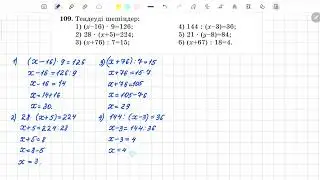 109. Теңдеуді шешіңдер:
1) (x–16) · 9=126;
2) 28 · (x+5)=224;
3) (x+76) : 7=15;
4) 144 : (x–3)=36;
5) 21 · (y–8)=84;
6) (x+67) : 18=4.
1) (x-16)·9=126
x-16=126:9
x-16=14
x=14+16
x=30.
2) 28 (x+5)=224
x+5=224:28
x+5=8
x=8-5
x=3
3) (x+76):7=15
x+76=15·7
x+76=105
x=105-76
x=29
4) 144:(x-3)=36
x-3=144:36
x-3=4
x=4